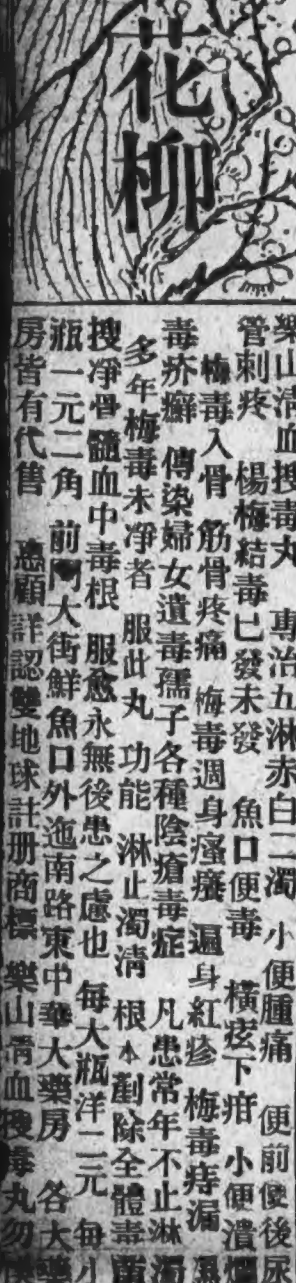 花柳
樂山清血搜毒丸 專治五淋赤白二濁 小便腫痛 便前便後尿
管刺疼 楊梅結毒已發未發 魚口便毒 橫痃下疳 小便潰爛
梅毒入骨 筋骨疼痛 梅毒週身瘙癢 遍身紅疹 梅毒痔漏
毒疥癬 傳染婦女遺毒孺子各種陰瘡毒症 凡患常年不止淋濁
多年梅毒未凈者 服此丸 功能 淋止濁清 根本剷除全體毒菌
搜凈骨髓血中毒根 服愈永無後患之慮也 每大瓶洋二元 每小
瓶一元二角 前門大街鮮魚口外迤南路東中華大藥房 各大藥
房皆有代售 惠顧詳認雙地球註册商標 樂山清血搜毒丸勿